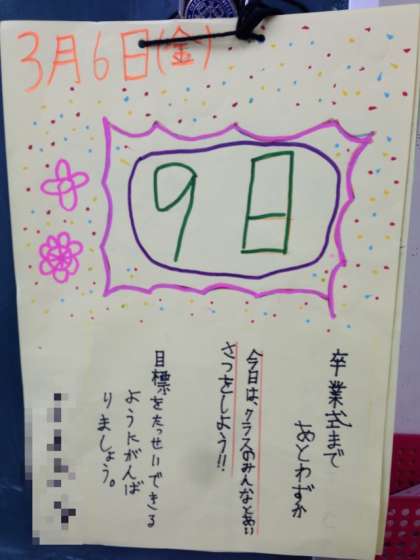 3月6日(金)
9日
卒業式まで
あとわずか
今日は、クラスのみんなとあい
さつをしよう!!
目標をたっせいできる
ようにがんば
りましょう。